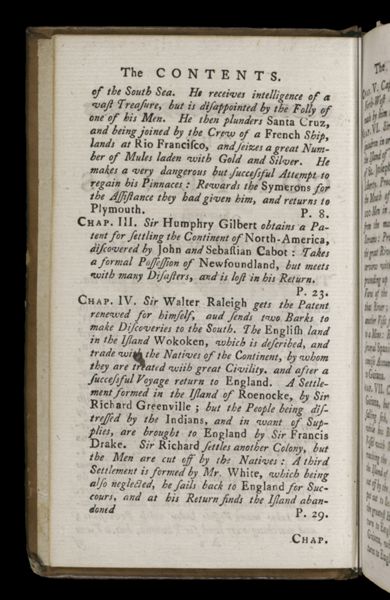 The CONTENTS.
of the South Sea. He receives intelligence of a
vaſt Treaſure, but is diſappointed by the Folly of
one of his Men. He then plunders Santa Cruz,
and being joined by the Crew of a French Ship,
lands at Rio Franciſco, and ſeizes a great Num-
ber of Mules laden with Gold and Silver. He
makes a very dangerous but ſucceſsful Attempt to
regain his Pinnaces : Rewards the Symerons for
the Aſſiſtance they had given him, and returns to
Plymouth. P. 8.
CHAP. III. Sir Humphry Gilbert obtains a Pa-
tent for ſettling the Continent of North-America,
diſcovered by John and Sebaſtian Cabot : Takes
a formal Poſſeſſion of Newfoundland, but meets
with many Diſaſters, and is loſt in his Return.
P. 23.
CHAP. IV. Sir Walter Raleigh gets the Patent
renewed for himſelf, aud ſends two Barks to
make Diſcoveries to the South. The Engliſh land
in the Iſland Wokoken, which is deſcribed, and
trade with the Natives of the Continent, by whom
they are treated with great Civility. and after a
ſucceſsful Voyage return to England. A Settle-
ment formed in the Iſland of Roenocke, by Sir
Richard Greenville ; but the People being diſ-
treſſed by the Indians, and in want of Sup-
plies, are brought to England by Sir Francis
Drake. Sir Richard ſettles another Colony, but
the Men are cut off by the Natives : A third
Settlement is formed by Mr. White, which being
alſo neglected, he ſails back to England for Suc-
cours, and at his Return finds the Iſland aban-
doned P. 29.
CHAP.